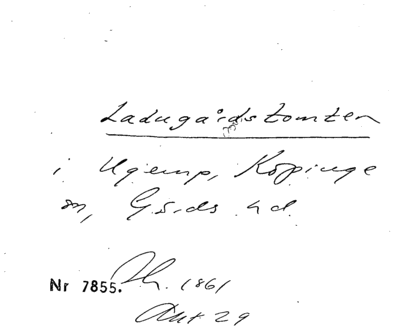 Ladugårdstomten
i Ugerup, Köpinge
sn, Gärds hd.
Nr 7855. Th. 1861
Akt 29